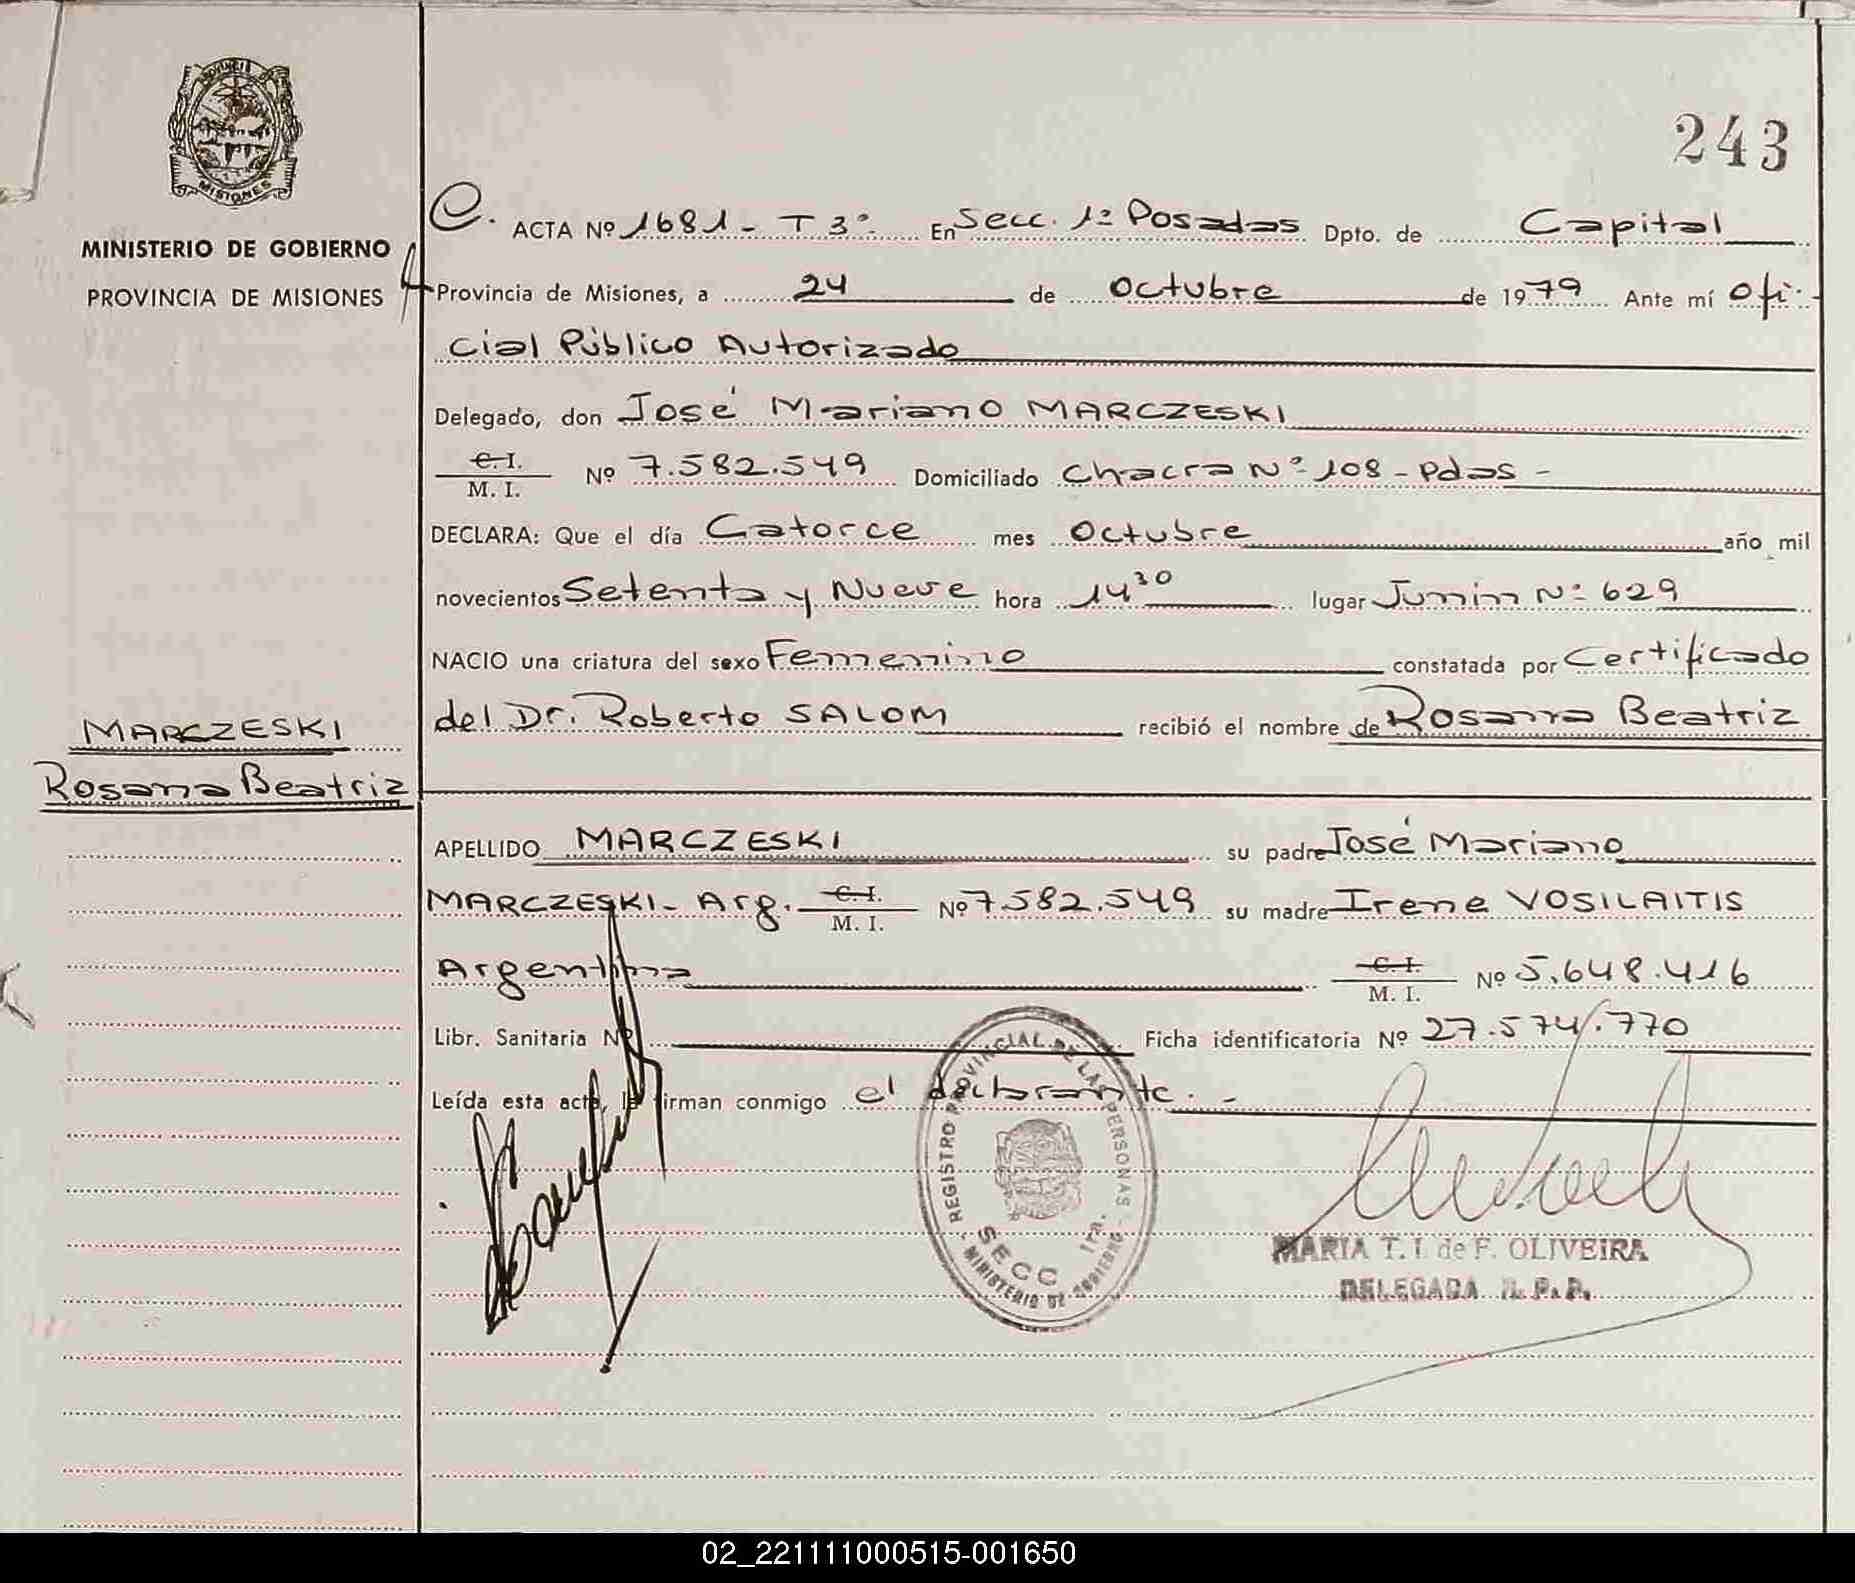 PROVINCIA
MISIONES
MINISTERIO DE GOBIERNO
PROVINCIA DE MISIONES
MARCZESKI
Rosana Beatriz
243
ACTA Nº 1681 - T 3º En Secc. 1º Posadas Dpto. de Capital
Provincia de Misiones, a 24 de Octubre de 1979 Ante mí Ofi-
cial Público Autorizado
Delegado, don José Mariano MARCZESKI
C. I.
M. I. Nº 7.582.549 Domiciliado Chacra Nº 108 - Pdas -
DECLARA: Que el día Catorce mes Octubre año mil
novecientos Setenta y Nueve hora 14 30 lugar Junin Nº 629
NACIO una criatura del sexo Femenino constatada por Certificado
del Dr. Roberto SALOM recibió el nombre de Rosana Beatriz
APELLIDO MARCZESKI su padre José Mariano
MARCZESKI - Arg. C. I.
M. I. Nº 7.582.549 su madre Irene VOSILAITIS
Argentina C. I.
M. I. Nº 5.648.416
Libr. Sanitaria Nº Ficha identificatoria Nº 27.574.770
Leída esta acta, la firman conmigo el declarante. -
REGISTRO PROVINCIAL DE LAS PERSONAS
SECC 1ra.
MINISTERIO DE GOBIERNO
MARIA T. I. de F. OLIVEIRA
DELEGADA R. P. P.
02_221111000515-001650